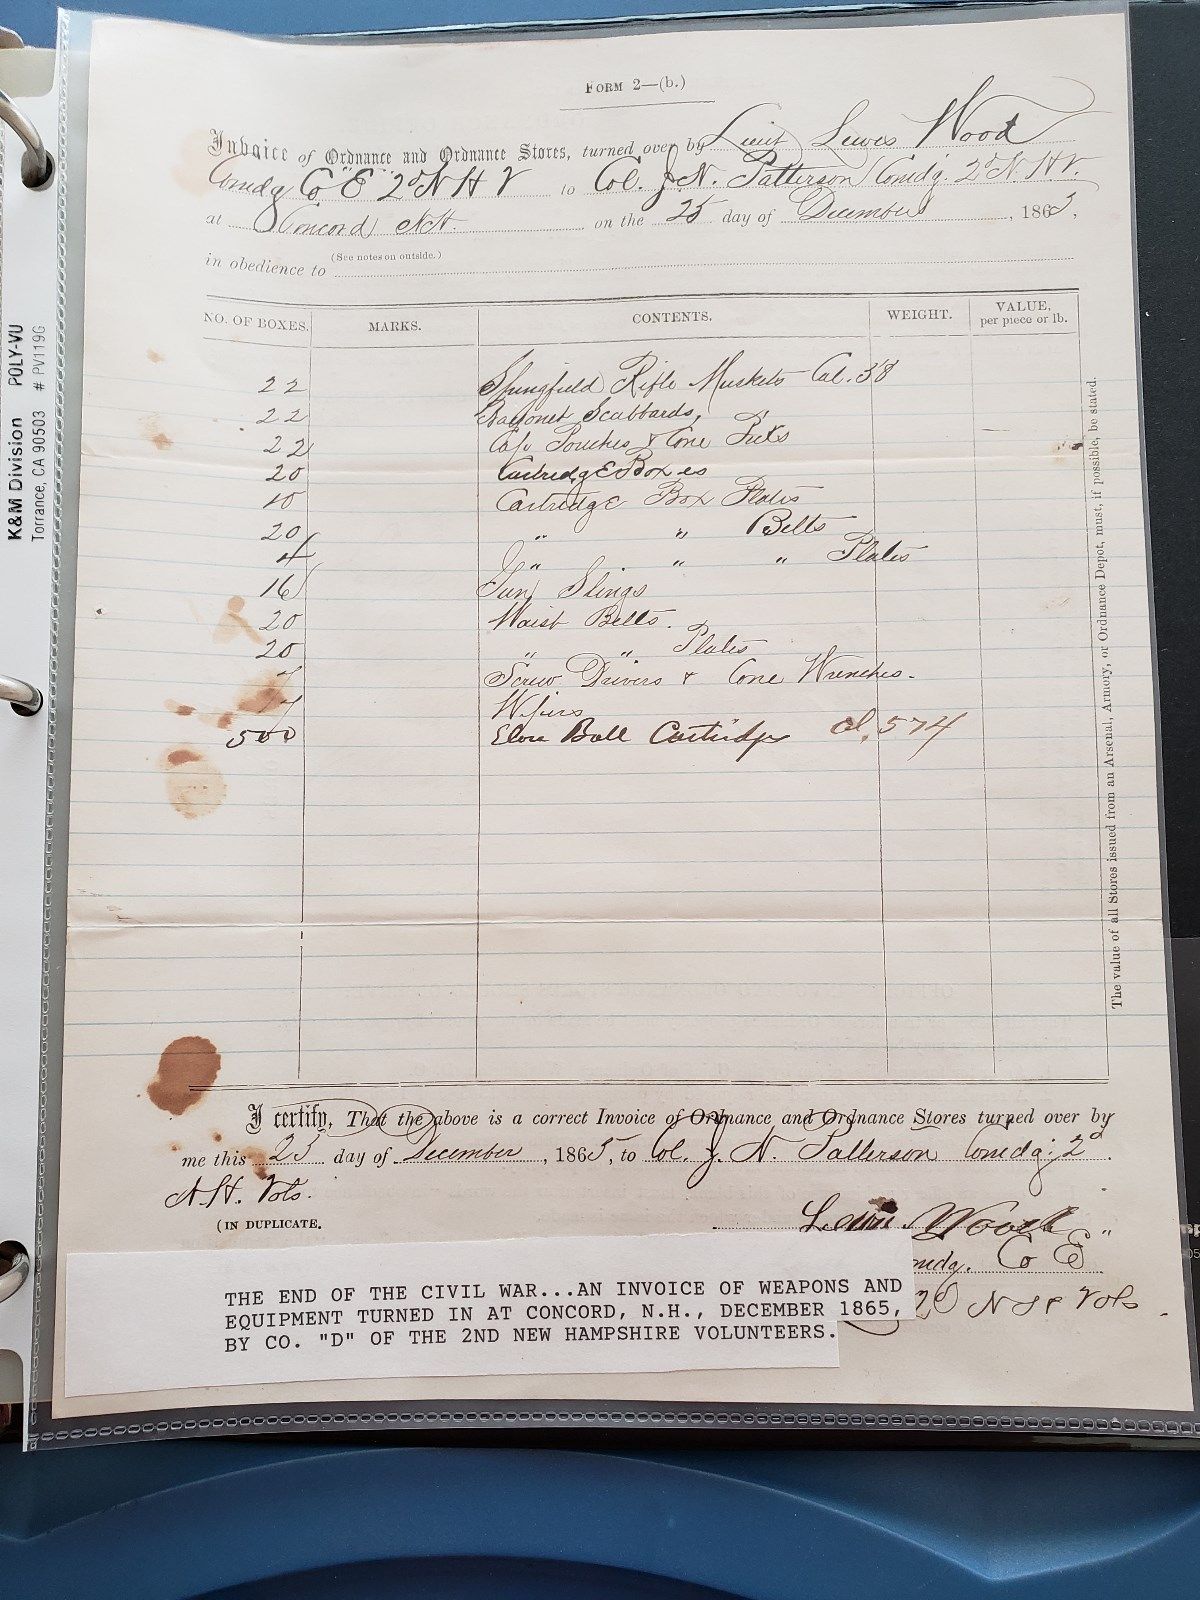 FORM 2—(b.)
Invoice of Ordnance and Ordnance Stores, turned over by Lieut Lewis Wood
Comdg Co "E" 2d N H V to Col. J. N. Patterson Comdg. 2d N. H. V.
at Concord NH. on the 25 day of December, 1865,
(See notes on outside.)
in obedience to
NO. OF BOXES. MARKS. CONTENTS. WEIGHT. VALUE, per piece or lb.
22 Springfield Rifle Muskets Cal. 58
22 Bayonet Scabbards,
22 Cap Pouches & Cone Picks
20 Cartridge Boxes
10 Cartridge Box Plates
20 " " Belts
4 " " " Plates
16 Gun Slings
20 Waist Belts.
20 " " Plates
7 Screw Drivers & Cone Wrenches.
7 Wipers
500 Elon Ball Cartridges Cal. 574
The value of all Stores issued from an Arsenal, Armory, or Ordnance Depot, must, if possible, be stated.
I certify, That the above is a correct Invoice of Ordnance and Ordnance Stores turned over by
me this 25 day of December, 1865, to Col. J. N. Patterson Comdg. 2d
N. H. Vols.
(IN DUPLICATE.
Lewis Wood
Co E
N H Vols.
THE END OF THE CIVIL WAR...AN INVOICE OF WEAPONS AND
EQUIPMENT TURNED IN AT CONCORD, N.H., DECEMBER 1865,
BY CO. "D" OF THE 2ND NEW HAMPSHIRE VOLUNTEERS.
K&M Division POLY-VU
Torrance, CA 90503 # PV119G